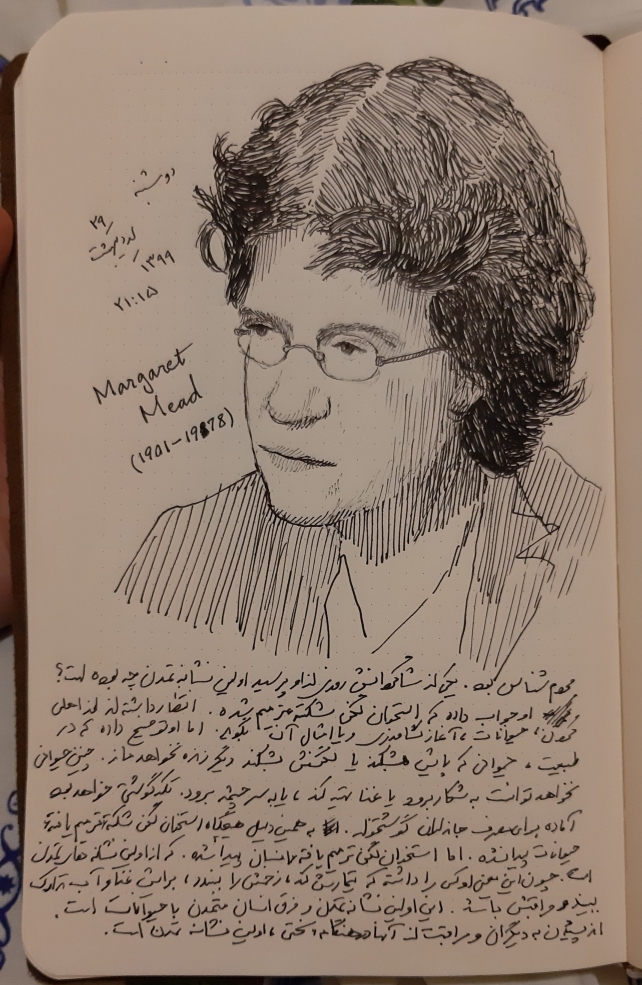 دوشنبه
۲۹/
اردیبهشت
/۱۳۹۹
۲۱:۱۵
Margaret
Mead
(1901-1978)
مردم شناس بود. یکی از شاگردانش روزی از او پرسید اولین نشانه تمدن چه بوده است؟
او جواب داده که استخوان لگن شکسته ترمیم شده. انتظار داشته اند از اهلی
حیوانات، آغاز کشاورزی و یا امثال آن بگوید. اما او توضیح داده که در
طبیعت، حیوانی که پایش بشکند یا لگنش بشکند دیگر زنده نخواهد ماند. چنین حیوانی
نخواهد توانست به شکار برود یا غذا تهیه کند، یا به سر چشمه برود. تکه گوشتی خواهد بود
آماده برای مصرف جانوران گوشتخوار. به همین دلیل هیچگاه استخوان لگن شکسته ترمیم یافته
حیوانات پیدا نشده. اما استخوان لگن ترمیم یافته انسان پیدا شده. که از اولین نشانه های تمدن
است. چون این یعنی او کسی را داشته که تیمارش کند، زخمش را ببندد، برایش غذا و آب تدارک
ببیند و مراقبش باشد. این اولین نشانه تمدن و فرق انسان متمدن با حیوانات است.
به دیگران و مراقبت از آنها هنگام سختی، اولین نشانه تمدن است.